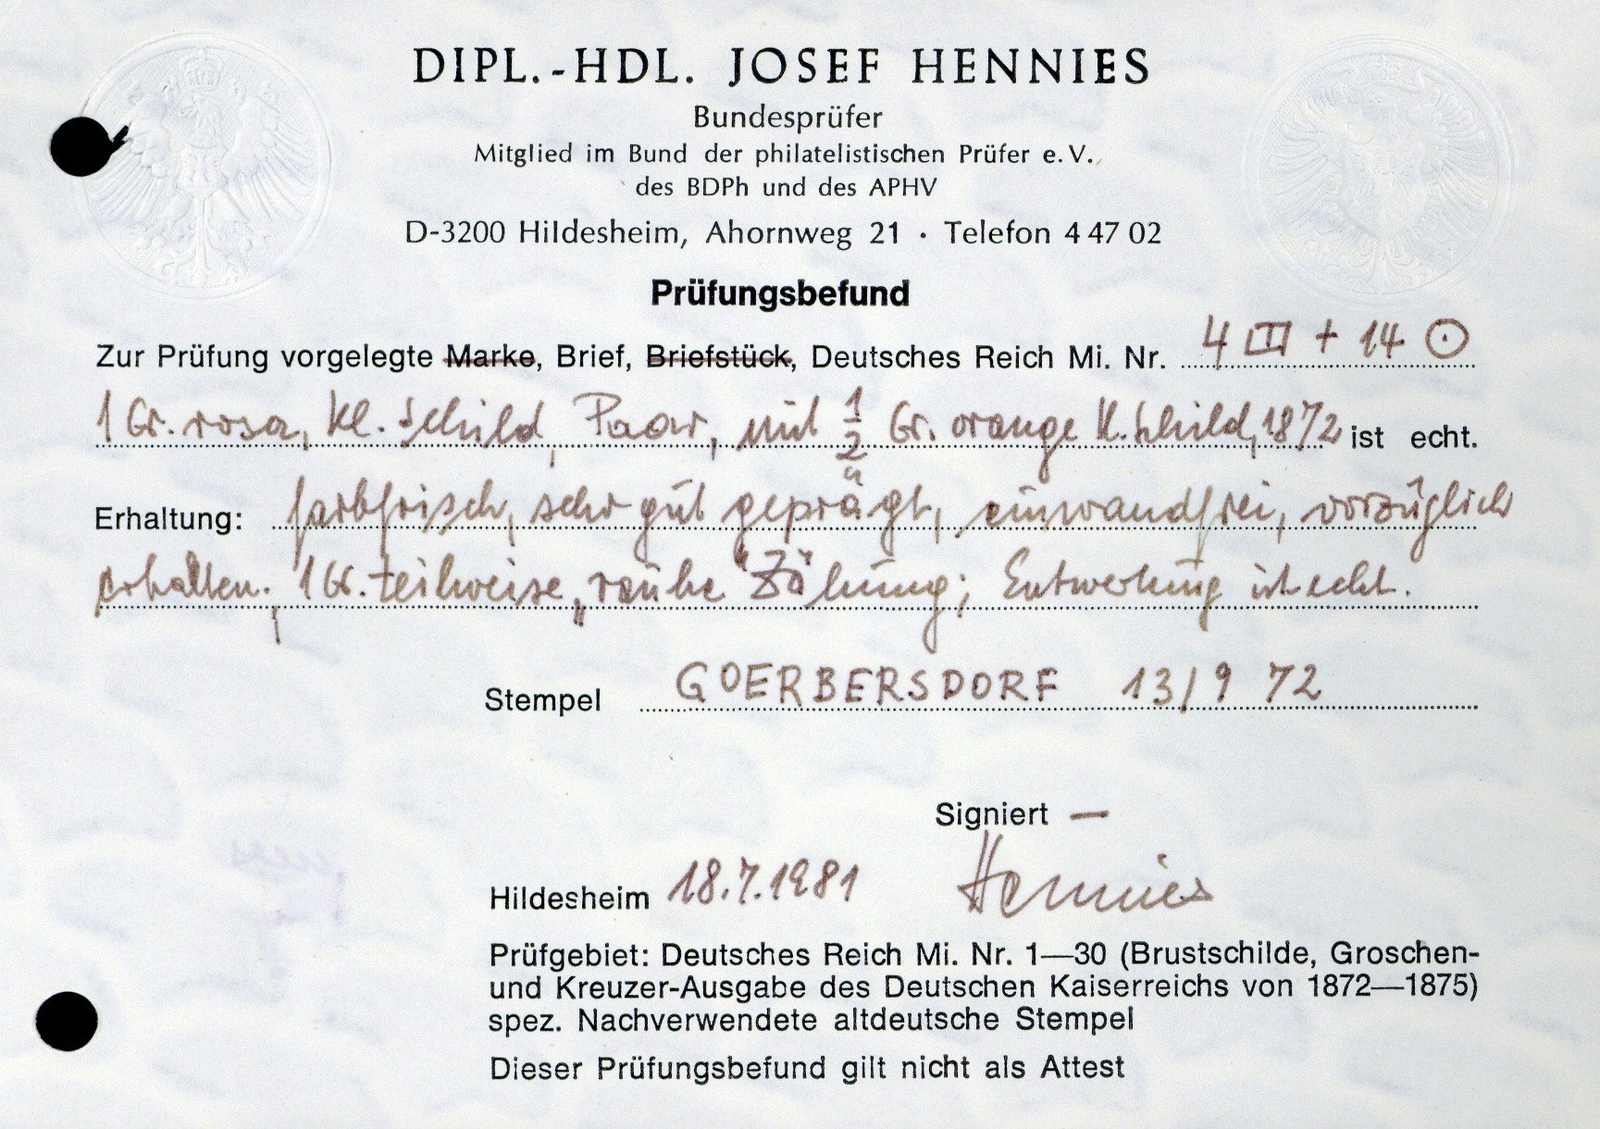 DIPL.-HDL. JOSEF HENNIES
Bundesprüfer
Mitglied im Bund der philatelistischen Prüfer e. V.,
des BDPh und des APHV
D-3200 Hildesheim, Ahornweg 21 · Telefon 4 47 02
Prüfungsbefund
Zur Prüfung vorgelegte Marke, Brief, Briefstück, Deutsches Reich Mi. Nr. 4 III + 14 ⊙
1 Gr. rosa, kl. Schild, Paar, mit 1/2 Gr. orange kl. Schild, 1872 ist echt.
Erhaltung: farbfrisch, sehr gut geprägt, einwandfrei, vorzüglich
erhalten. 1 Gr. teilweise „rauhe" Zähnung; Entwertung ist echt.
Stempel GOERBERSDORF 13/9 72
Signiert —
Hildesheim 18.7.1981 Hennies
Prüfgebiet: Deutsches Reich Mi. Nr. 1—30 (Brustschilde, Groschen-
und Kreuzer-Ausgabe des Deutschen Kaiserreichs von 1872—1875)
spez. Nachverwendete altdeutsche Stempel
Dieser Prüfungsbefund gilt nicht als Attest